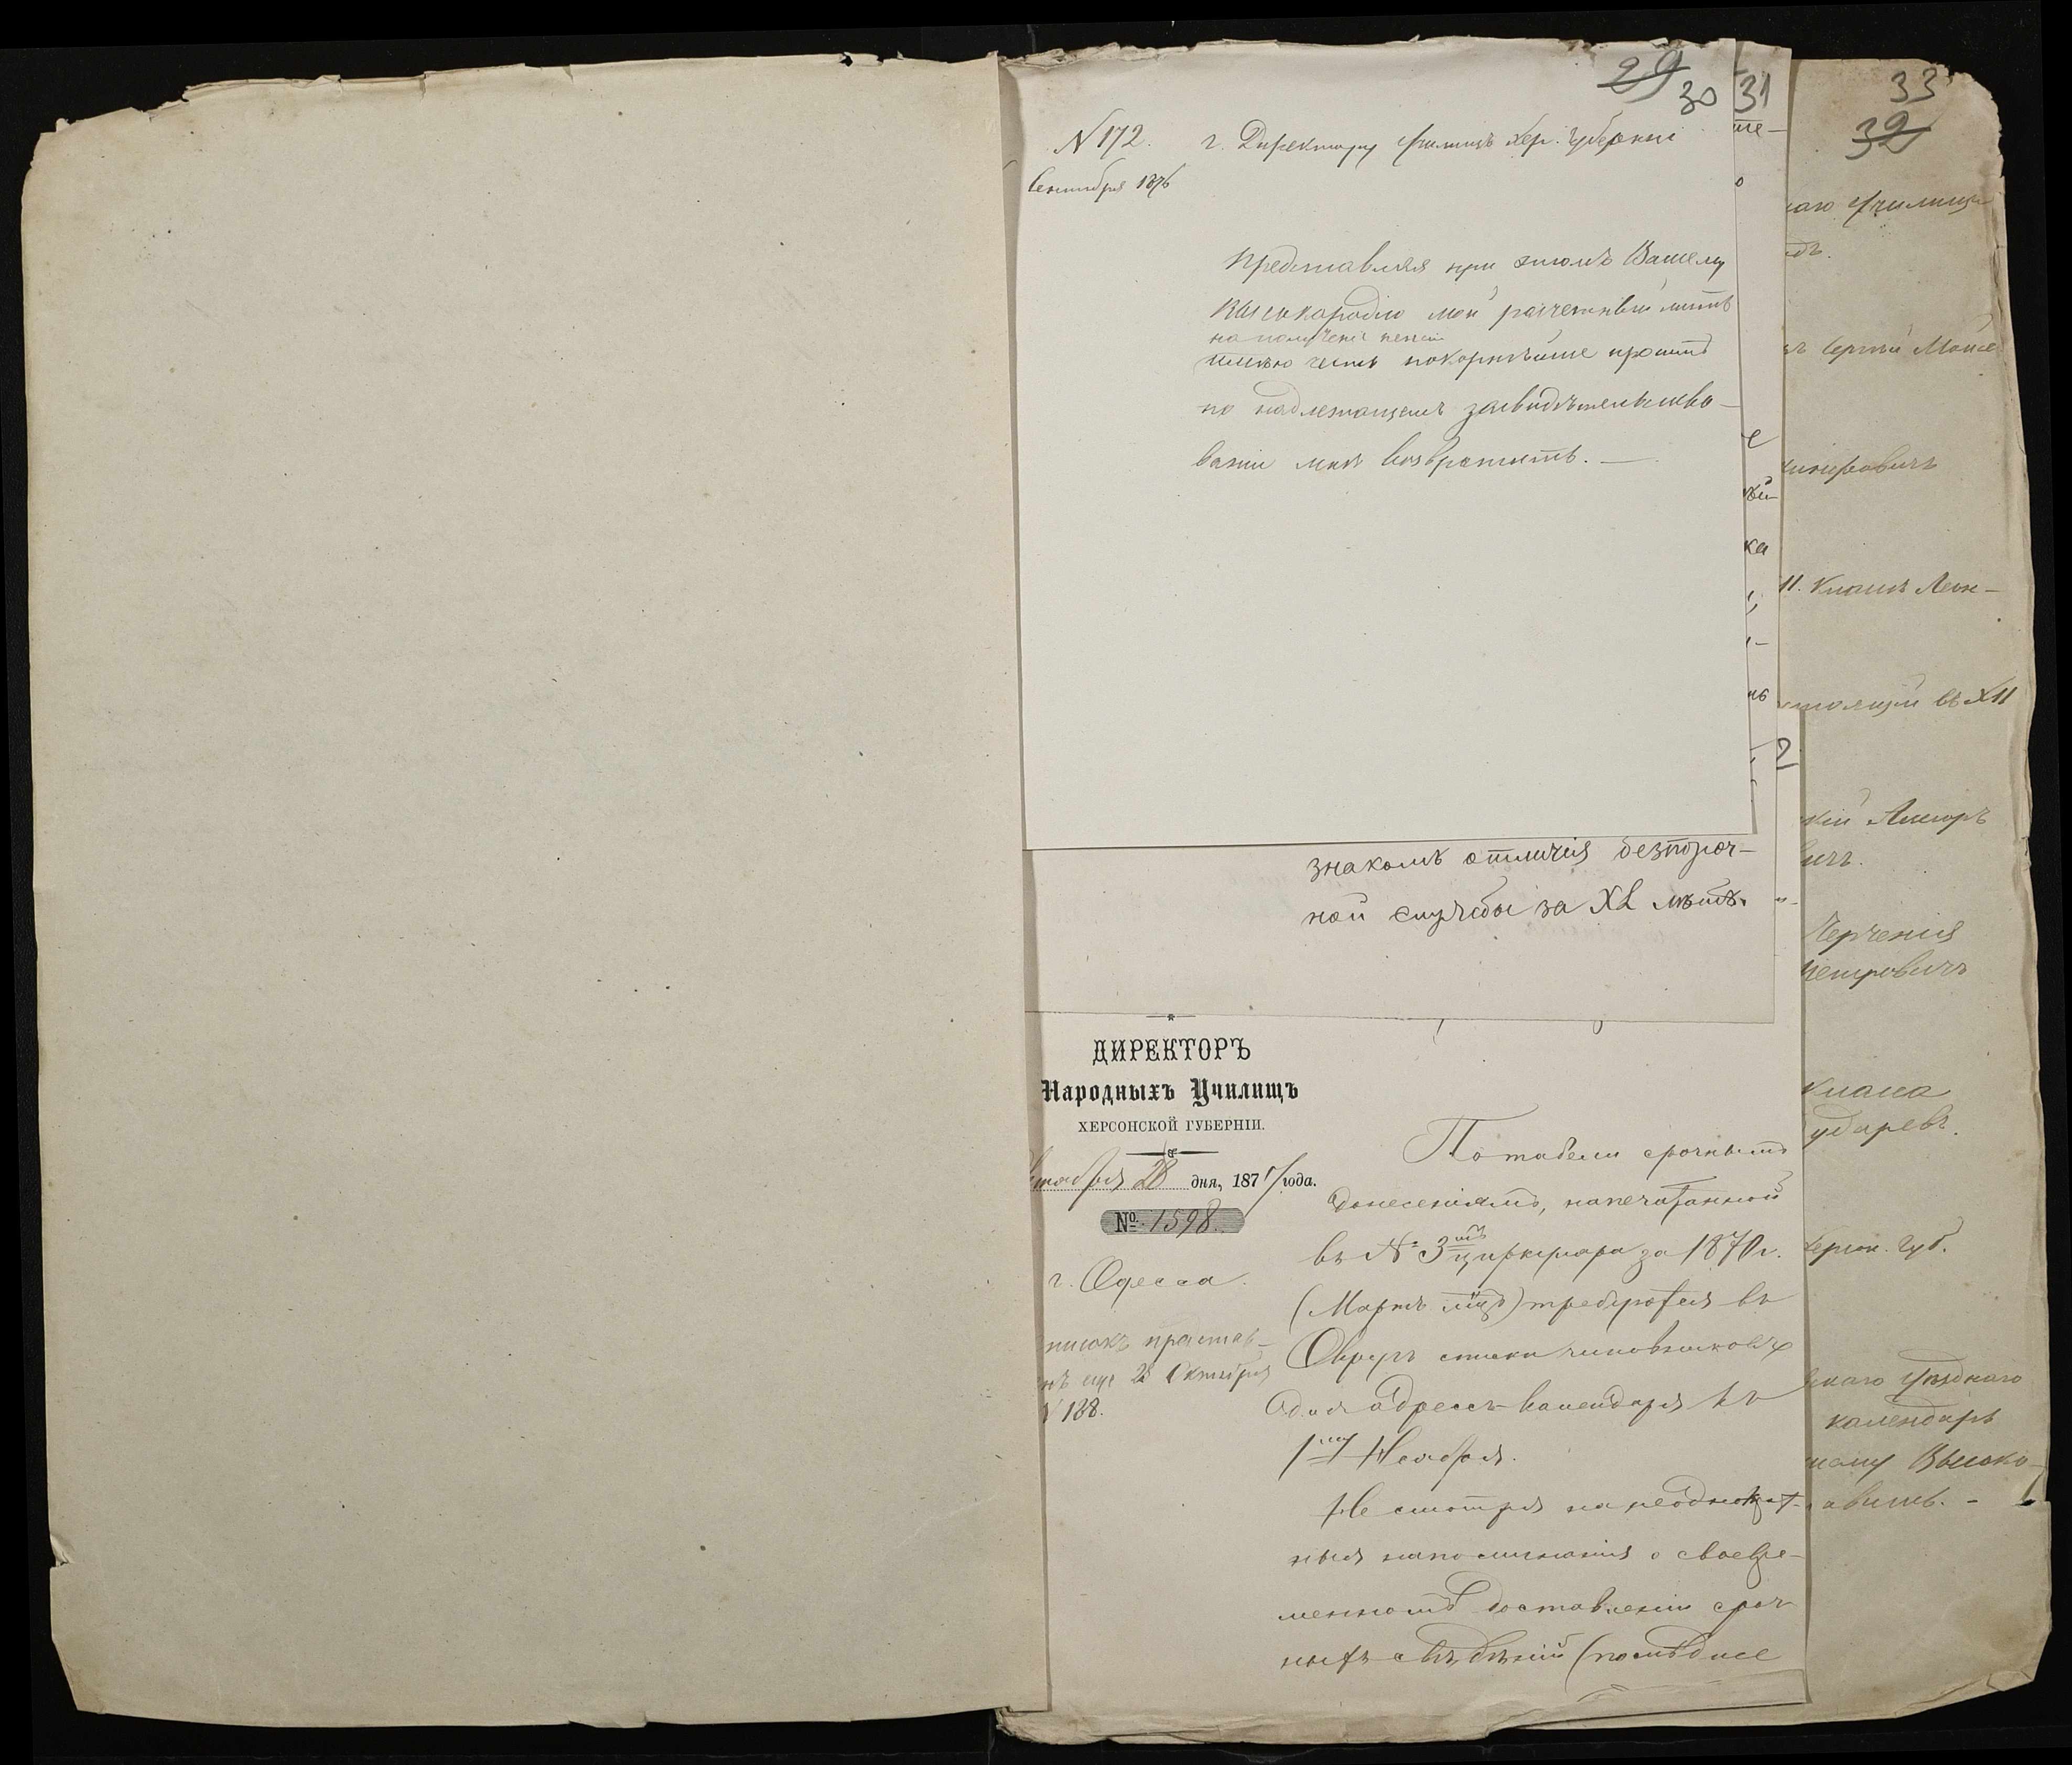 29
30
31
33
32
N 172.
г. Директору Училищъ Хер. Губерніи
Сентября 1876
Представляя при этомъ Вашему
Высокородію мой расчетный листъ
на полученіе пенсіи
имѣю честь покорнѣйше просить
по надлежащемъ засвидѣтельство-
ваніи мнѣ возвратить. —
знакомъ отличія безпороч-
ной службы за XL лѣтъ.
ДИРЕКТОРЪ
Народныхъ Училищъ
ХЕРСОНСКОЙ ГУБЕРНІИ.
28 дня, 187 года.
№ 1598.
г. Одесса.
еще 28 Октября
N 188.
По табели срочнымъ
донесеніямъ, напечатанной
въ № 3 циркуляра за 1870 г.
(Мартъ мѣц) требуются въ
Округъ списки чиновниковъ
для адресъ-календаря къ
1му Ноября.
Не смотря на неоднократ-
ныя напоминанія о своевре-
менномъ доставленіи сроч-
ныхъ свѣдѣній (послѣднее
каго училища
II. Клаша Леон-
въ XII
Черченія
Петровичъ
класа
Херсон. Губ.
скаго уѣзднаго
календарь
шему Высоко-